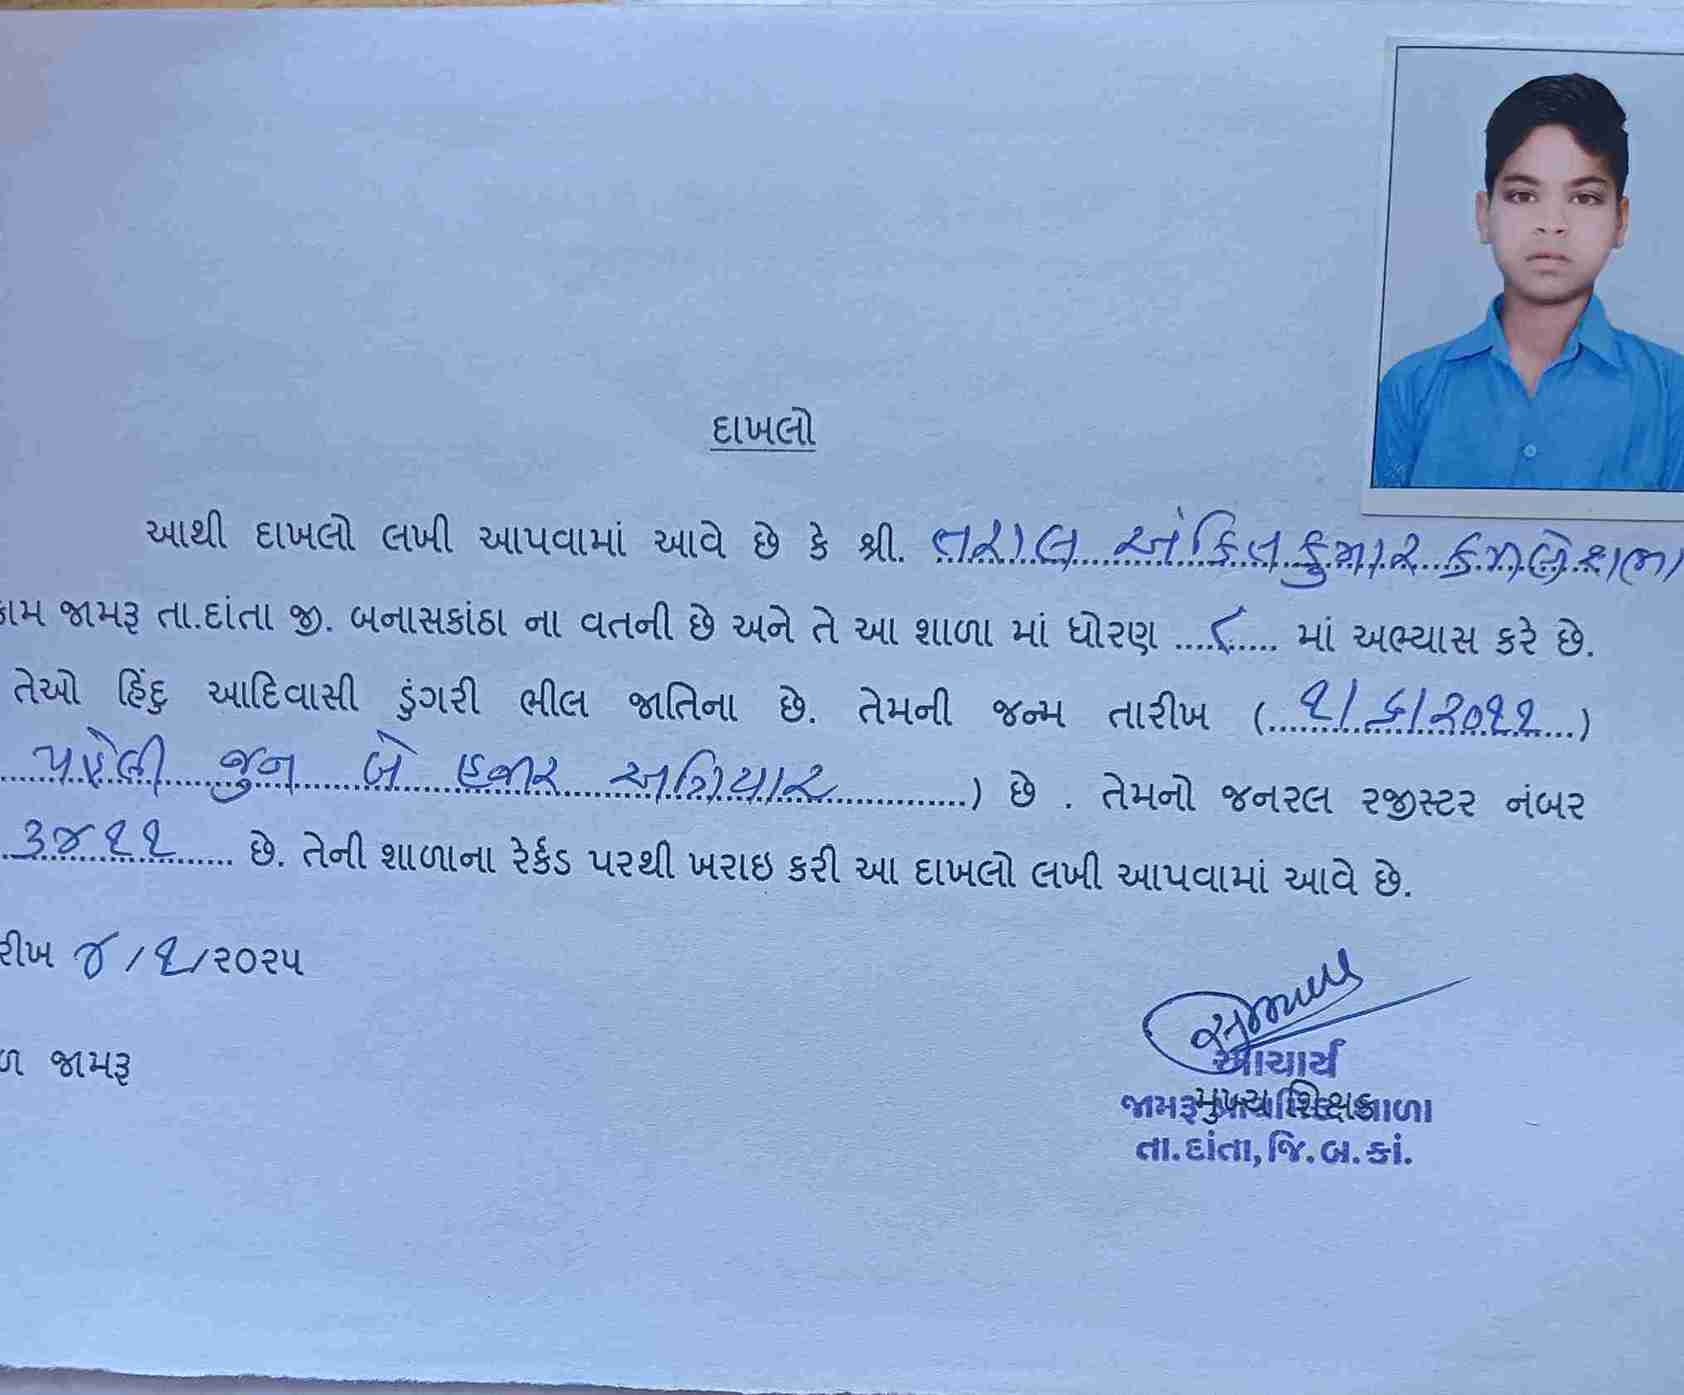 દાખલો
આથી દાખલો લખી આપવામાં આવે છે કે શ્રી. તરાલ અંકિતકુમાર કમલેશભા
કામ જામરૂ તા.દાંતા જી. બનાસકાંઠા ના વતની છે અને તે આ શાળા માં ધોરણ ....૮..... માં અભ્યાસ કરે છે.
તેઓ હિંદુ આદિવાસી ડુંગરી ભીલ જાતિના છે. તેમની જન્મ તારીખ (...૧/૬/૨૦૧૧...)
પહેલી જુન બે હજાર અગિયાર ............) છે . તેમનો જનરલ રજીસ્ટર નંબર
૩૪૧૧ ..... છે. તેની શાળાના રેર્કડ પરથી ખરાઇ કરી આ દાખલો લખી આપવામાં આવે છે.
રીખ ૪/૧/૨૦૨૫
ળ જામરૂ
આચાર્ય
જામરૂ શાળા
મુખ્ય શિક્ષક
તા.દાંતા, જિ.બ.કાં.